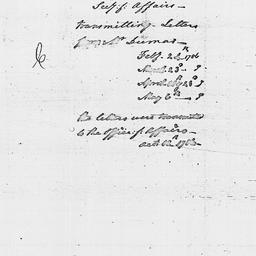 Secy of Affairs—
transmitting Letters
from Mr Dumas—
Feby. 24th 1786
March 23d —
April 28th
May 6th —
The letters were transmitted
to the Office of Affairs—
Oct 12th 1786—